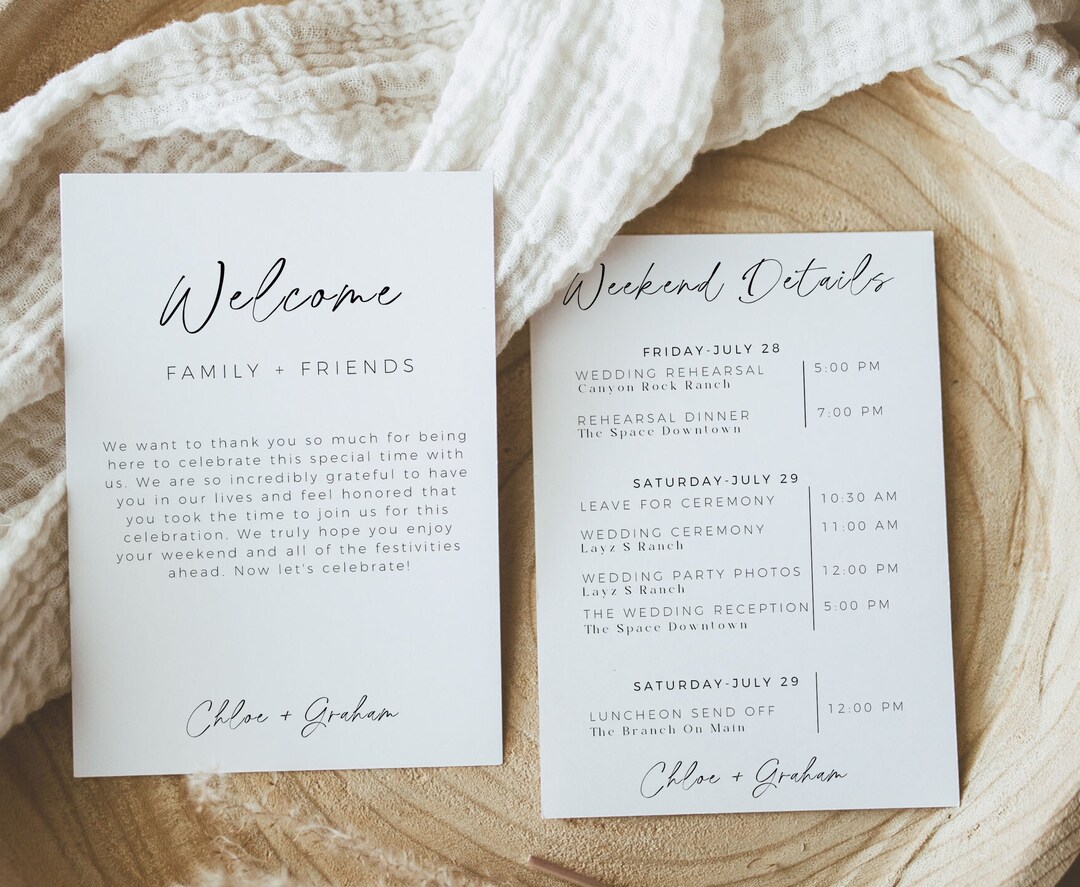 Welcome
FAMILY + FRIENDS
We want to thank you so much for being
here to celebrate this special time with
us. We are so incredibly grateful to have
you in our lives and feel honored that
you took the time to join us for this
celebration. We truly hope you enjoy
your weekend and all of the festivities
ahead. Now let's celebrate!
Chloe + Graham
Weekend Details
FRIDAY-JULY 28
WEDDING REHEARSAL 5:00 PM
Canyon Rock Ranch
REHEARSAL DINNER 7:00 PM
The Space Downtown
SATURDAY-JULY 29
LEAVE FOR CEREMONY 10:30 AM
WEDDING CEREMONY 11:00 AM
Layz S Ranch
WEDDING PARTY PHOTOS 12:00 PM
Layz S Ranch
THE WEDDING RECEPTION 5:00 PM
The Space Downtown
SATURDAY-JULY 29
LUNCHEON SEND OFF 12:00 PM
The Branch On Main
Chloe + Graham